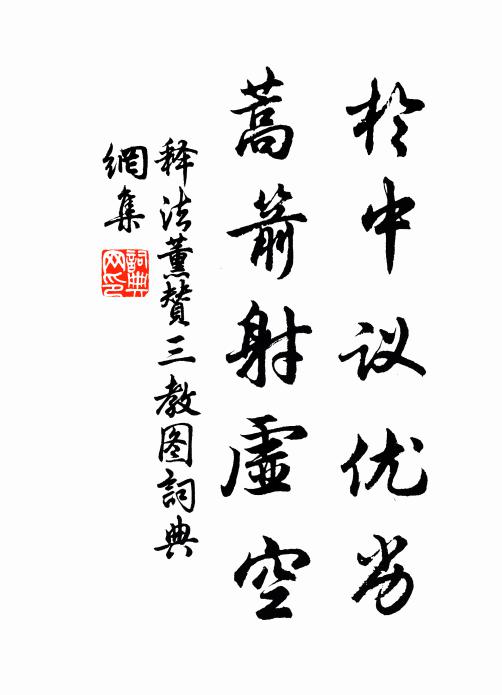 於中议优劣
蒿箭射虚空
释法薰赞三教图词典
網集
詞典
网印